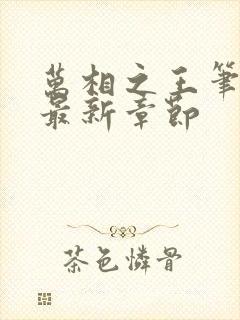 萬相之王筆
最新章節
茶色憐骨